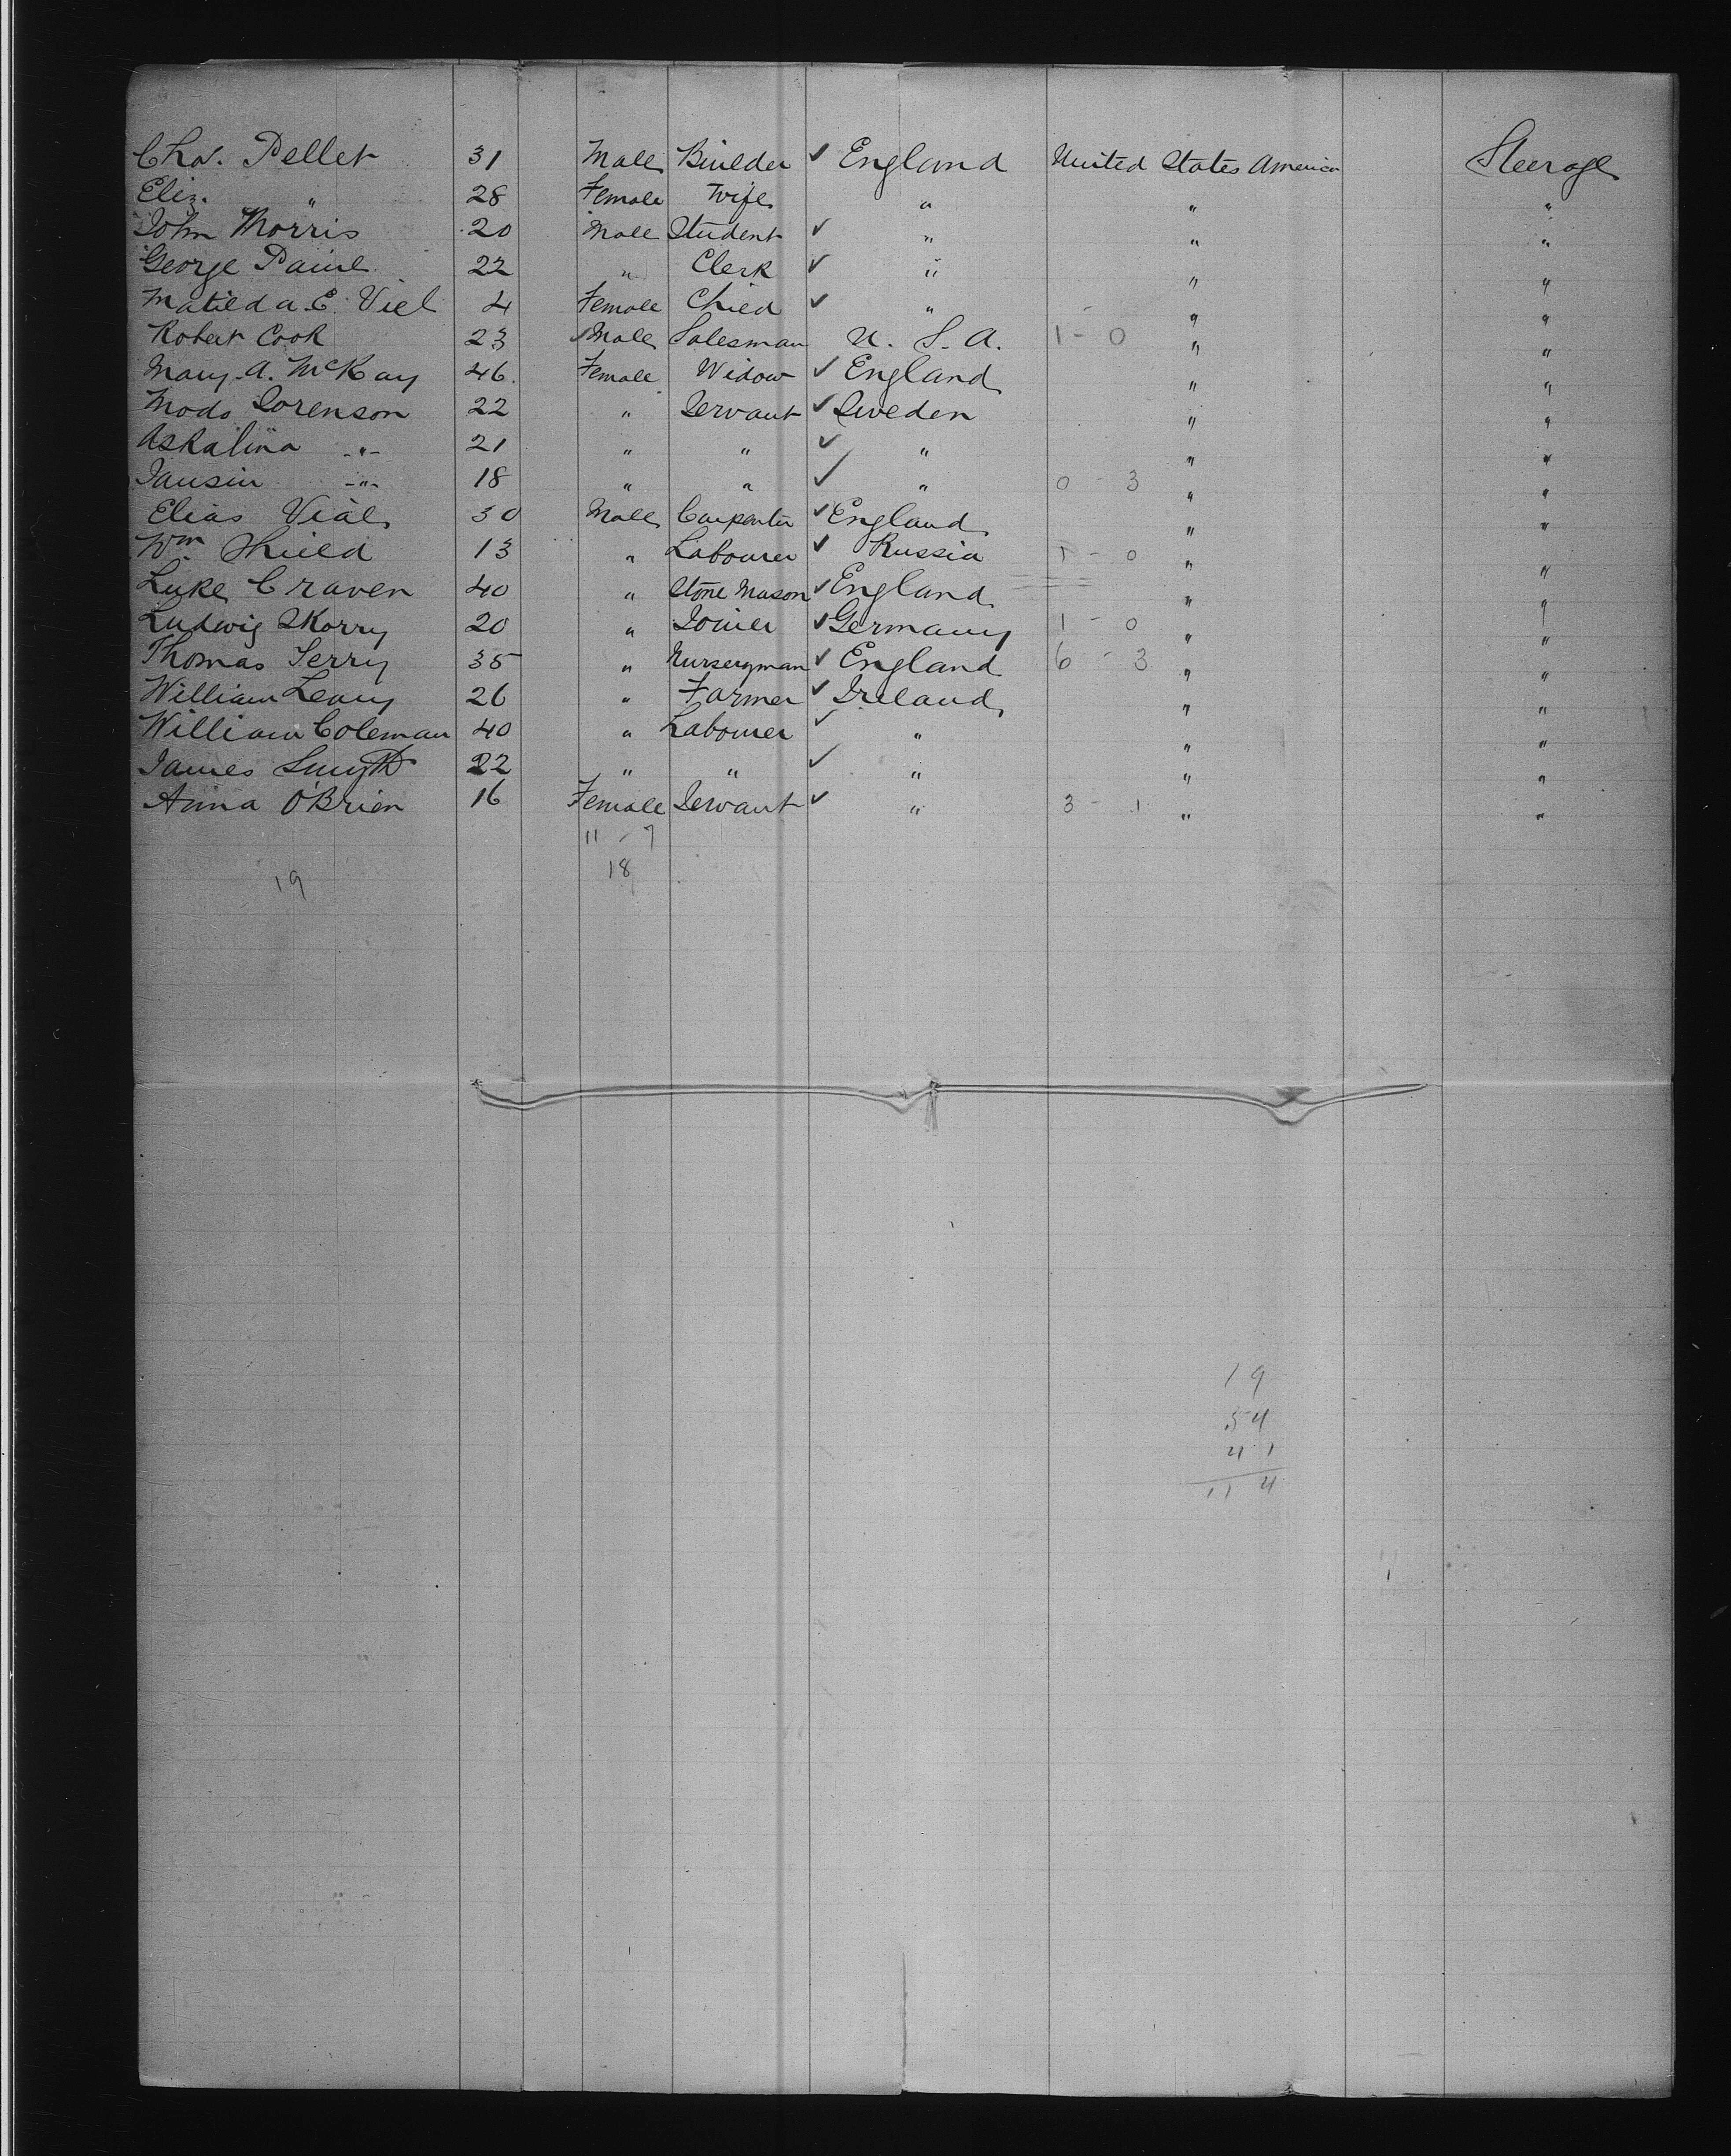 Chas. Pellet 31 Male Builder ✓ England United States America Steerage
Eliz. " 28 Female Wife " " "
John Morris 20 Male Student ✓ " " "
George Paine 22 " Clerk ✓ " " "
Matilda E. Viel 4 Female Child ✓ " " "
Robert Cook 23 Male Salesman U. S. A. 1 - 0 " "
Mary A. McKay 46 Female Widow ✓ England " "
Mods Sorenson 22 " Servant ✓ Sweden " "
Askalina " 21 " " ✓ " " "
Jausin " 18 " " ✓ " 0 - 3 " "
Elias Vial 30 Male Carpenter ✓ England " "
Wm Shield 13 " Labourer ✓ Russia 1 - 0 " "
Luke Craven 40 " Stone Mason ✓ England " "
Ludwig Skorry 20 " Joiner ✓ Germany 1 - 0 " "
Thomas Terry 35 " Nurseryman ✓ England 6 - 3 " "
William Leary 26 " Farmer ✓ Ireland " "
William Coleman 40 " Labourer ✓ " " "
James Smyth 22 " " ✓ " " "
Anna O'Brien 16 Female Servant ✓ " 3 - 1 " "
11 - 7
19 18
19
54
41
114